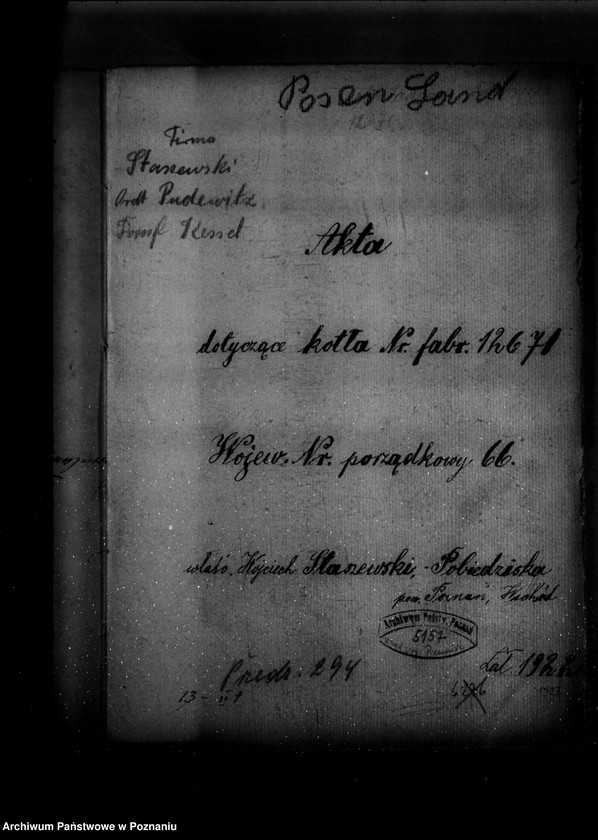 Posen Land
Firma
Staszewski
Pudewitz
Kessel
Akta
dotyczące kotła Nr. fabr. 12671
Wojew. Nr. porządkowy 66.
właśc. Wojciech Staszewski, - Pobiedziska
pow. Poznań, Wschód
Archiwum Państw. Poznań
5157
Przedr. 294
13 - II 1
Lat 1922
Archiwum Państwowe w Poznaniu